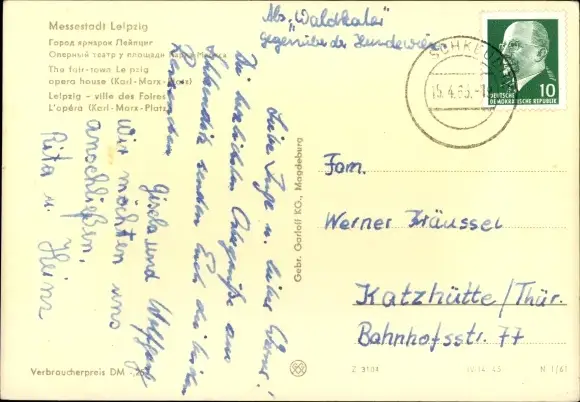 Messestadt Leipzig
Город ярмарок Лейпциг
Оперный театр у площади Карла Маркса
The fair-town Leipzig
opera house (Karl-Marx-Platz)
Leipzig – ville des Foires
L'opéra (Karl-Marx-Platz)
Abs. „Waldkater"
gegenüber der Hundewiese
SCHKEUDITZ
15.4.65.-1
DEUTSCHE
DEMOKRATISCHE REPUBLIK
10
Liebe Inge u. lieber Werner!
Die herzlichsten Ostergrüße aus
Schkeuditz senden Euch die beiden
Gisela und Wolfgang
Wir möchten uns
anschließen,
Rita u. Heinz
Gebr. Garloff KG., Magdeburg
Fam.
Werner Kräussel
Katzhütte/Thür.
Bahnhofsstr. 77
Verbraucherpreis DM -,20
Z 3104